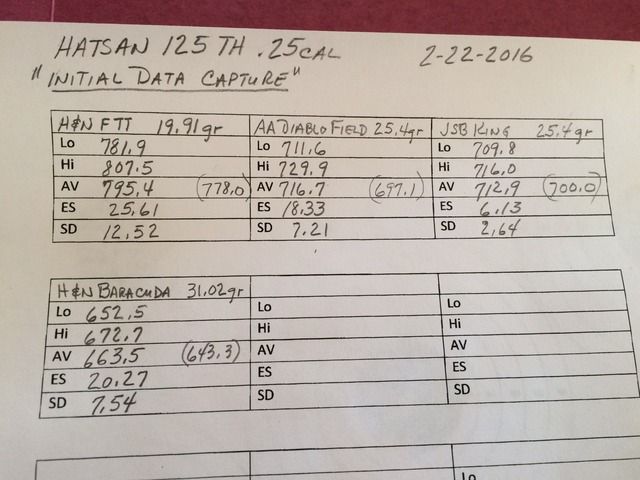 HATSAN 125 TH .25 CAL 2-22-2016
"INITIAL DATA CAPTURE"
H&N FTT 19.91gr AA DIABLO FIELD 25.4gr JSB KING 25.4gr
Lo 781.9 Lo 711.6 Lo 709.8
Hi 807.5 Hi 729.9 Hi 716.0
AV 795.4 (778.0) AV 716.7 (697.1) AV 712.9 (700.0)
ES 25.61 ES 18.33 ES 6.13
SD 12.52 SD 7.21 SD 2.64
H&N BARACUDA 31.02gr
Lo 652.5 Lo Lo
Hi 672.7 Hi Hi
AV 663.5 (643.3) AV AV
ES 20.27 ES ES
SD 7.54 SD SD
Lo